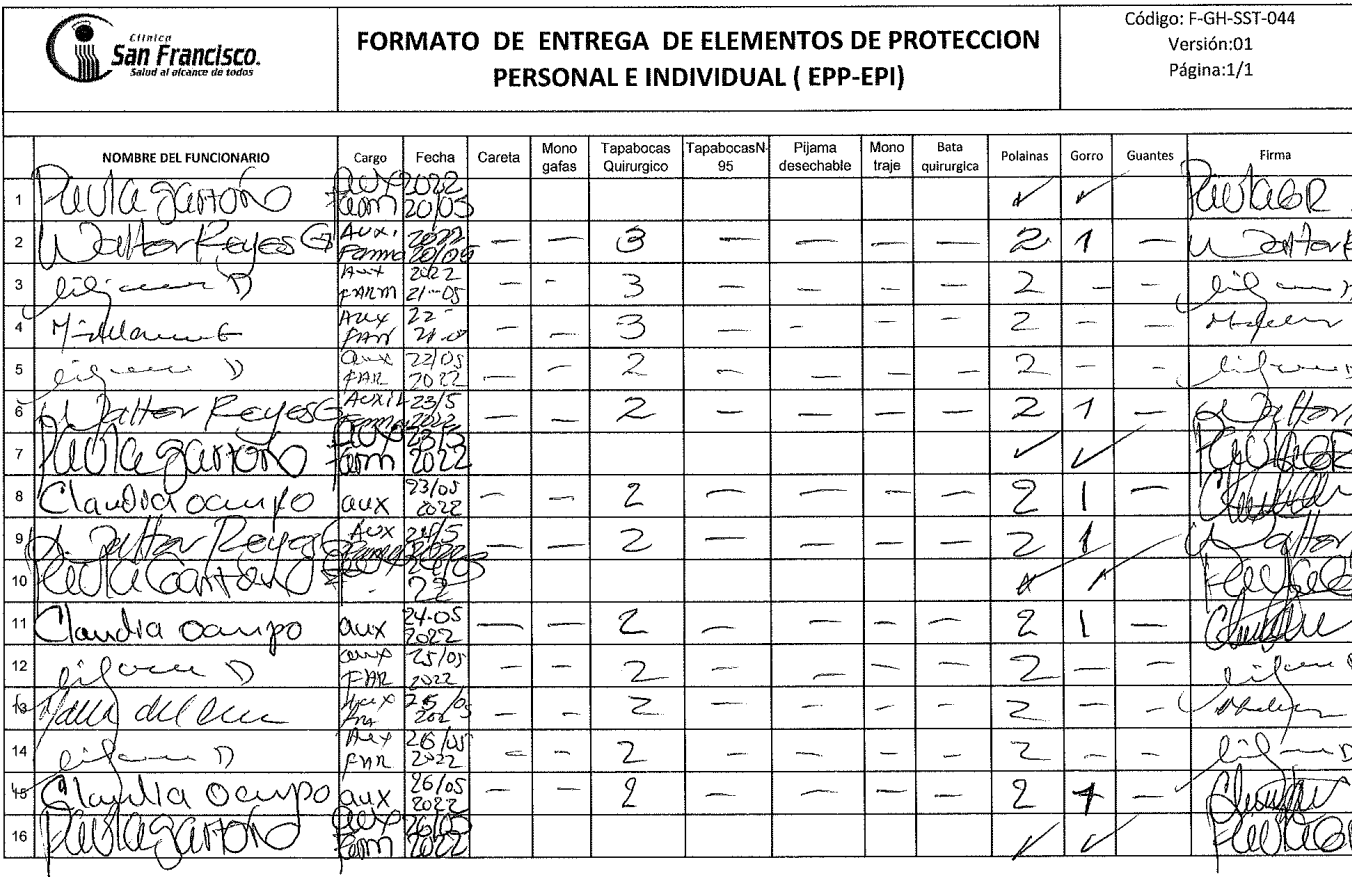 Clínica
San Francisco.
Salud al alcance de todos
FORMATO DE ENTREGA DE ELEMENTOS DE PROTECCION
PERSONAL E INDIVIDUAL ( EPP-EPI)
Código: F-GH-SST-044
Versión:01
Página:1/1
NOMBRE DEL FUNCIONARIO Cargo Fecha Careta Mono gafas Tapabocas Quirurgico TapabocasN-95 Pijama desechable Mono traje Bata quirurgica Polainas Gorro Guantes Firma
1 Paula garzón aux farm 2022 20/05 ✓ ✓
2 Walter Reyes G Aux. Farma 2022 20/05 — — 3 — — — — 2 1 — Walter
3 Aux FARM 2022 21-05 — - 3 — — — — 2 - —
4 Aux FAR 22 21-0 — — 3 — - — — 2 - —
5 aux FAR 22/05 2022 — - 2 — — — — 2 — -
6 Walter Reyes G Auxil Farma 23/5 2022 — — 2 — — — — 2 1 — Walter
7 Paula garzón aux farm 2022 ✓ ✓
8 Claudia ocampo aux 23/05 2022 — — 2 — — — — 2 1 —
9 Walter Reyes G Aux 24/5 — — 2 — — — — 2 1 Walter
10 Paula Garzón 22 ✓ ✓
11 Claudia ocampo aux 24-05 2022 — — 2 — — — — 2 1 —
12 aux FAR 25/05 2022 — — 2 — — — 2 — —
13 Aux 25/05 — - 2 — — - — 2 - —
14 Aux FAR 26/05 2022 - — 2 — — — — 2 - -
15 Claudia Ocampo aux 26/05 2022 — — 2 — — — — 2 1 —
16 Paula garzón aux farm 26/05 2022 ✓ ✓